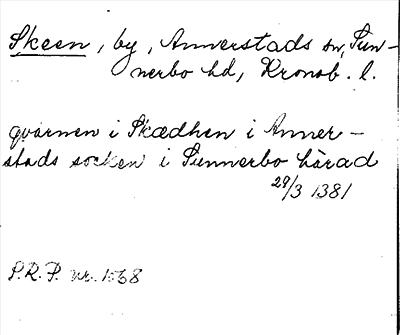 Skeen, by, Annerstads sn, Sun-
nerbo hd, Kronob. l.
qvarnen i Skædhen i Anner-
stads socken i Sunnerbo härad
29/3 1381
P.R.P. nr. 1568